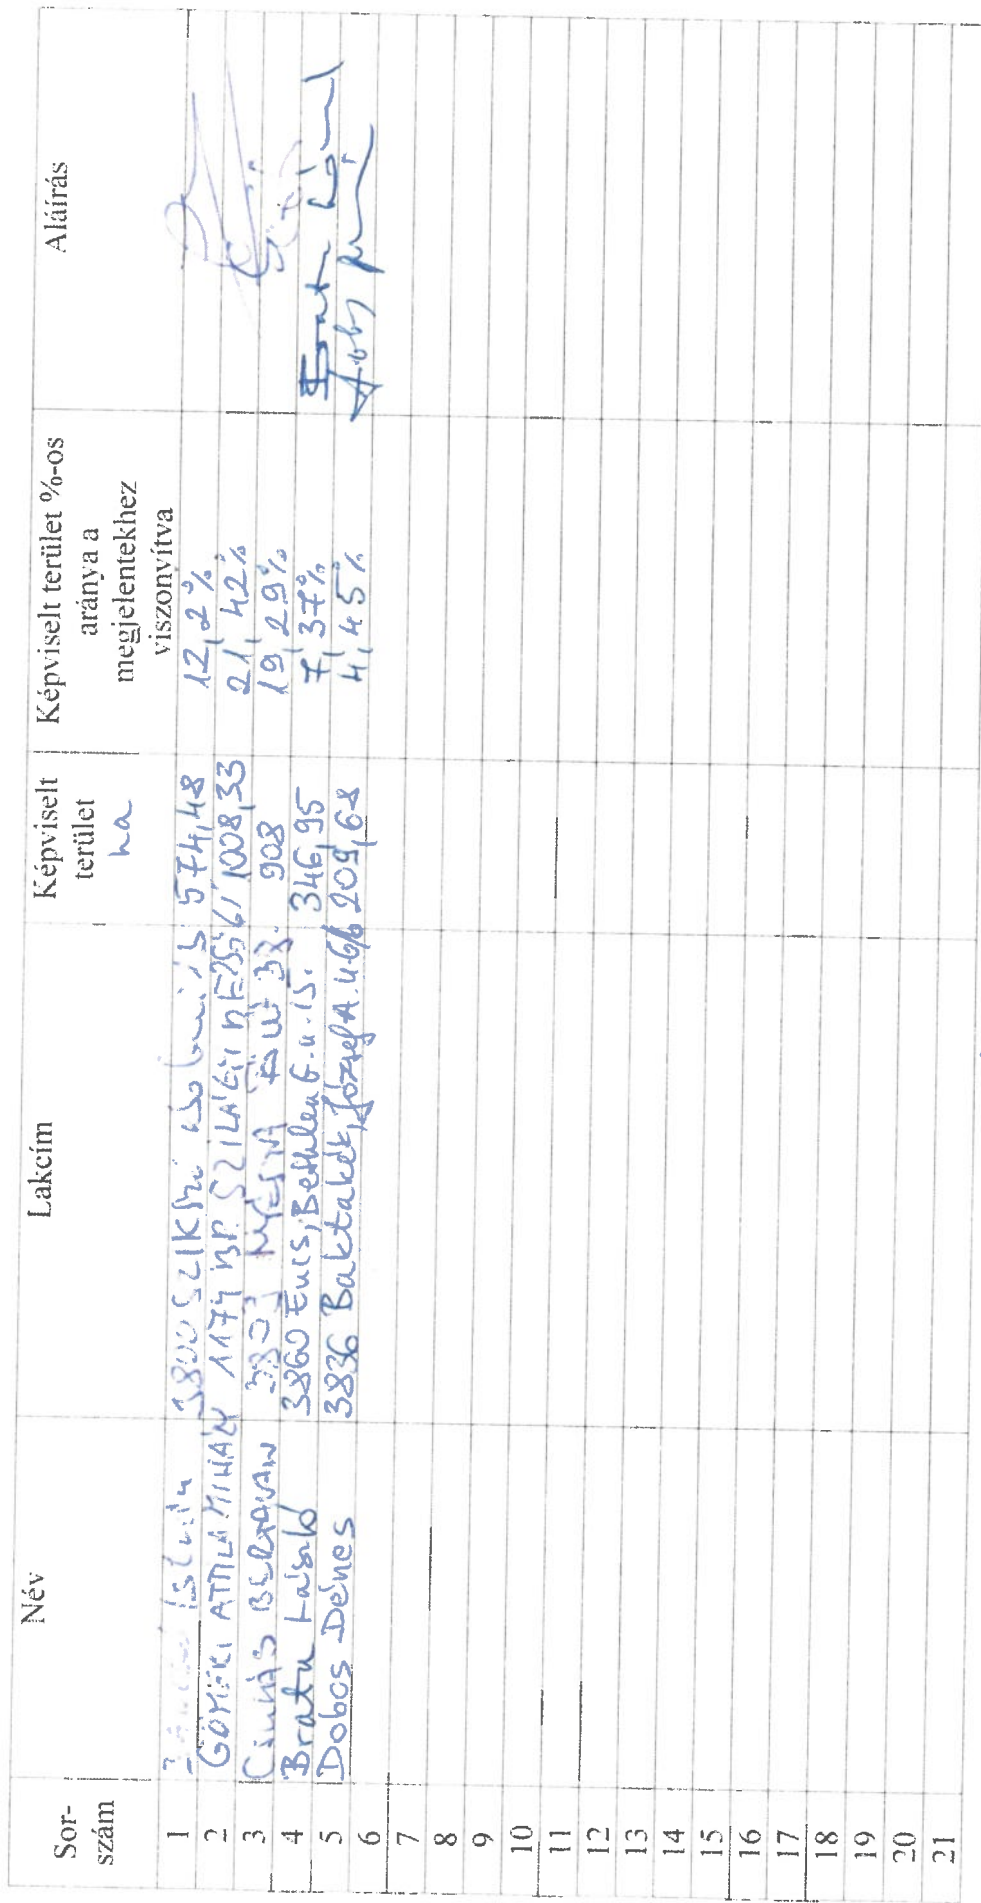 Sor-
szám
Név
Lakcím
Képviselt
terület
ha
Képviselt terület %-os
aránya a
megjelentekhez
viszonyítva
Aláírás
1 István 3800 574,48 12,2%
2 ATTILA MIHÁLY 1174 BP SZILÁGYI DEZSŐ 61 1008,33 21,42%
3 BERTALAN 908 19,29%
4 Bratu László 3860 Encs, Bethlen G.u.15. 346,95 7,37%
5 Dobos Dénes 3836 Baktakék, József A. u 6/b 209,68 4,45%
6
7
8
9
10
11
12
13
14
15
16
17
18
19
20
21